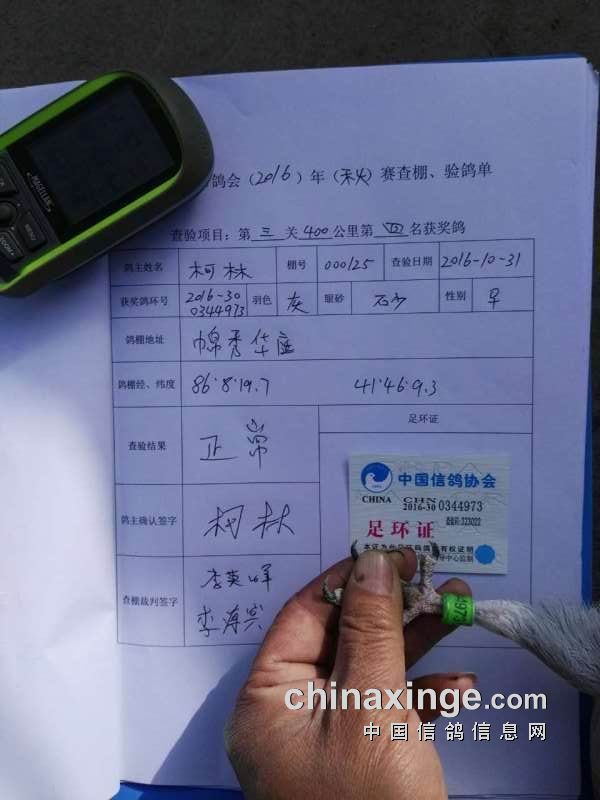 鸽会（2016）年（秋）赛查棚、验鸽单
查验项目：第 三 关 400 公里第 四 名获奖鸽
鸽主姓名 柯林 棚号 000125 查验日期 2016-10-31
获奖鸽环号 2016-30 0344973 羽色 灰 眼砂 石少 性别
鸽棚地址 锦秀华庭
鸽棚经、纬度 86°8'19.7 41°46'9.3
查验结果 正常
足环证
鸽主确认签字 柯林
查棚裁判签字
李海宾
中国信鸽协会
CHINA CHN
2016-30 0344973
足环证
MAGELLAN
MENU
chinaxinge.com
中国信鸽信息网